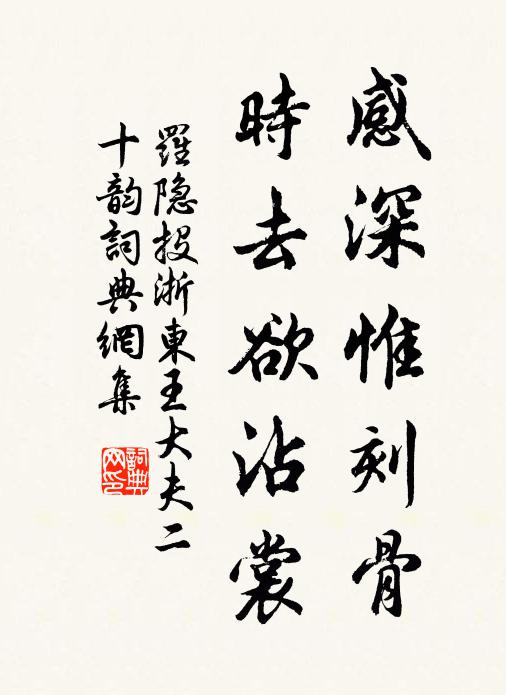 感深惟刻骨
時去欲沾裳
羅隐投浙東王大夫二
十韵詞典網集
詞典
网印